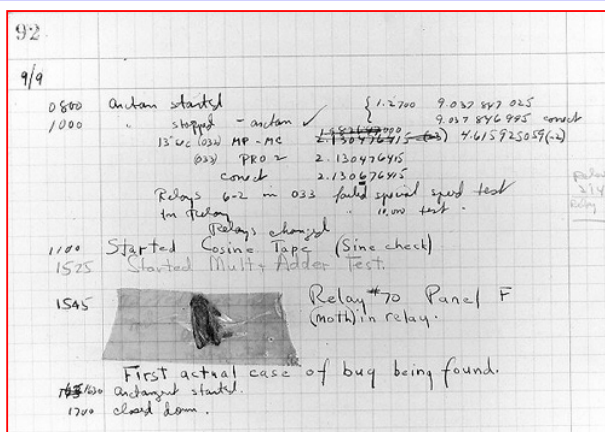 92
9/9
0800 antan started { 1.2700 9.037 847 025
1000 " stopped - antan ✓ 9.037 846 995 conect
13"uc (032) MP - MC 2.130476415 4.615925059(-2)
(033) PRO 2 2.130476415
conect 2.130676415
Relays 6-2 in 033 failed special speed test
in relay " 10,000 test .
Relays changed
1100 Started Cosine Tape (Sine check)
1525 Started Mult + Adder Test.
1545 Relay #70 Panel F
(moth) in relay.
First actual case of bug being found.
1630 antangent started.
1700 closed down .